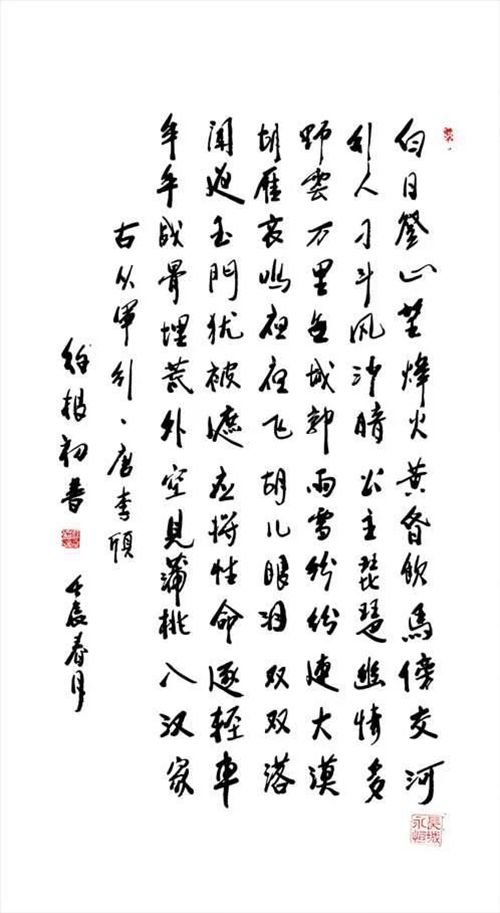 白日登山望烽火黄昏飲馬傍交河
行人刁斗风沙暗公主琵琶幽情多
野雲万里無城郭雨雪纷纷連大漠
胡雁哀鸣夜夜飞胡儿眼泪双双落
闻道玉門犹被遮应将性命逐輕車
年年战骨埋荒外空见蒲桃入汉家
古从军行、唐李颀
徐根初書
壬辰春月